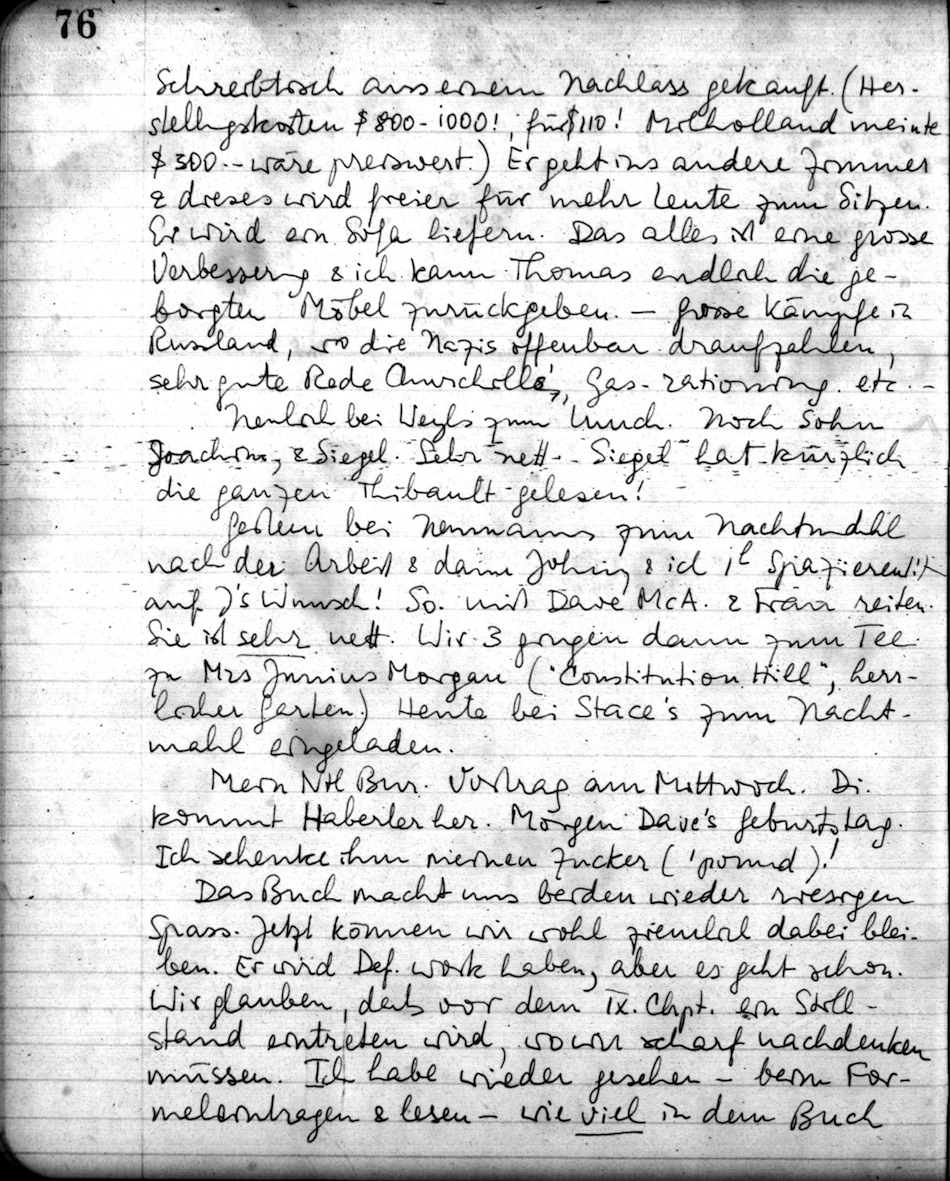 76
Schreibtisch aus einem Nachlass gekauft. (Her-
stellgskosten $800-1000!, für $110! Milholland meinte
$300.- wäre preiswert.) Er geht ins andere Zimmer
& dieses wird freier für mehr Leute zum Sitzen.
Er wird ein Sofa liefern. Das alles ist eine grosse
Verbesserg & ich kann Thomas endlich die ge-
borgten Möbel zurückgeben. — Grosse Kämpfe in
Russland, wo die Nazis offenbar draufzahlen,
sehr gute Rede Churchills, Gas-rationing. etc. -
Neulich bei Weyls zum Lunch. Noch Sohn
Joachim, & Siegel. Sehr nett. - Siegel hat kürzlich
die ganzen Thibault gelesen!
Gestern bei Neumanns zum Nachtmahl
nach der Arbeit & dann Johnny & ich 1h Spazieren
auf J's Wunsch! So. mit Dave McA. & Frau reiten.
Sie ist sehr nett. Wir 3 gingen dann zum Tee
zu Mrs Junius Morgan ("Constitution Hill", herr-
licher Garten.) Heute bei Stace's zum Nacht-
mahl eingeladen.
Mein Ntl Bur. Vortrag am Mittwoch. Di.
kommt Haberler her. Morgen Dave's Geburtstag.
Ich schenke ihm meinen Zucker (1 pound)!
Das Buch macht uns beiden wieder riesigen
Spass. Jetzt können wir wohl ziemlich dabei blei-
ben. Er wird Def. work haben, aber es geht schon.
Wir glauben, dass vor dem IX. Chpt. ein Still-
stand eintreten wird, wo wir scharf nachdenken
müssen. Ich habe wieder gesehen - beim For-
meleintragen & lesen - wie viel in dem Buch